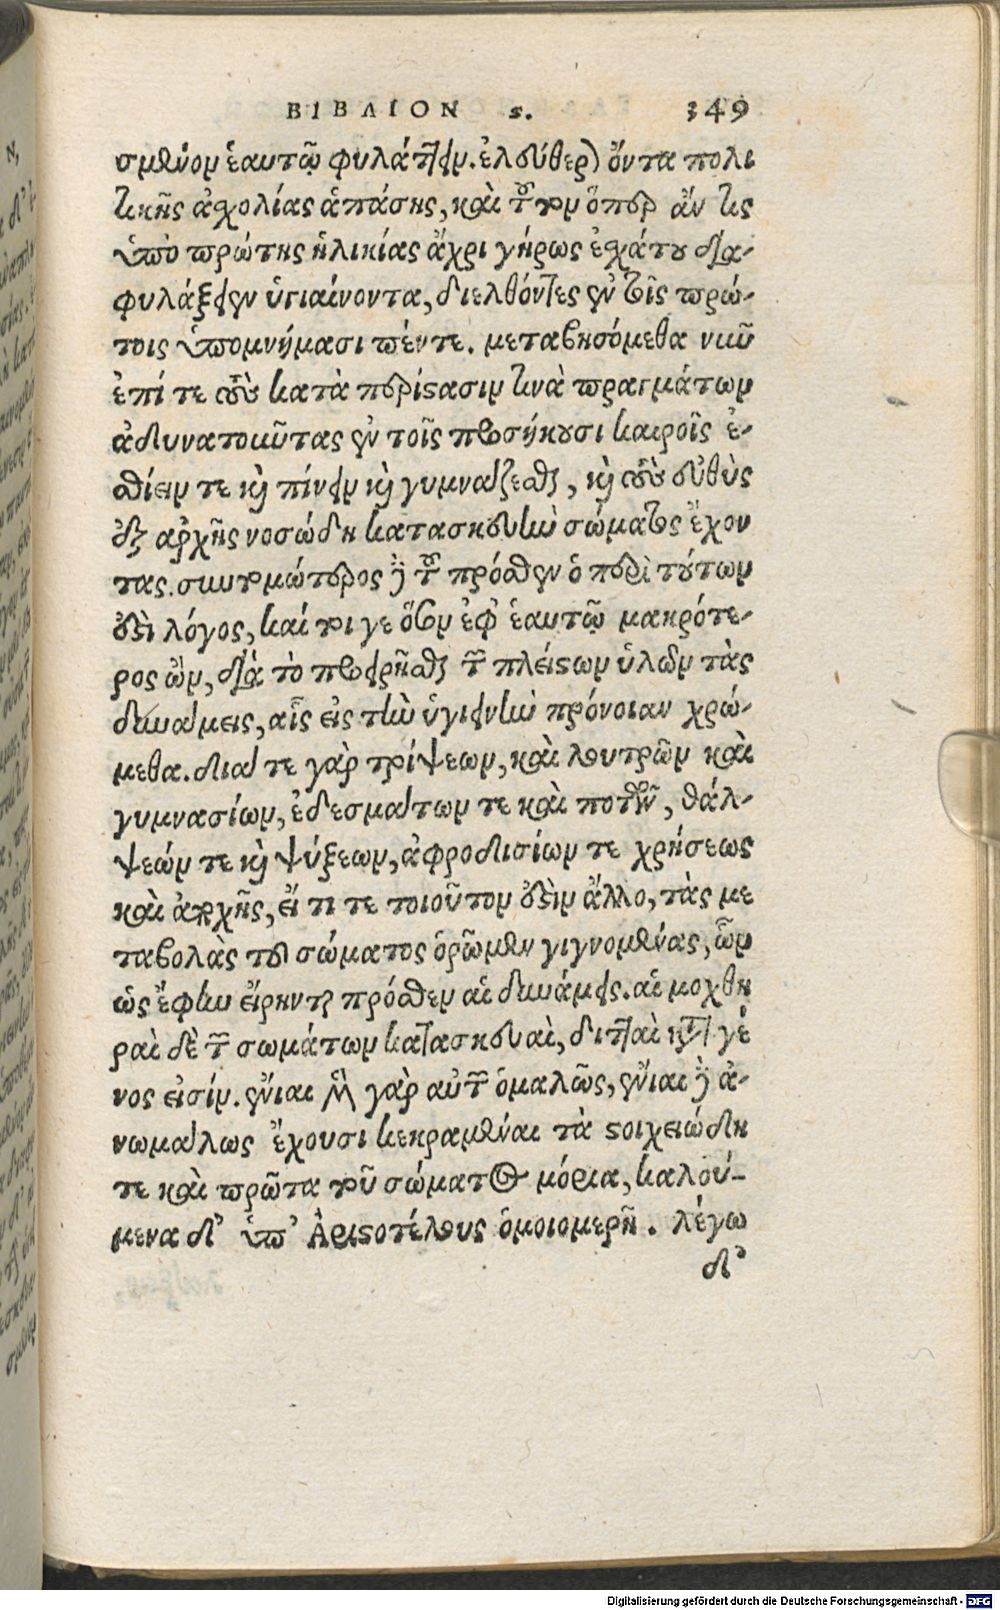 ΒΙΒΛΙΟΝ ϛ. 349
σμένον ἑαυτῷ φυλάττειν. ἐλεύθερον ὄντα πολι
τικῆς ἀσχολίας ἁπάσης, καὶ τὸν τρόπον ὅνπερ ἄν τις
ἀπὸ πρώτης ἡλικίας ἄχρι γήρως ἐσχάτου δια-
φυλάξειεν ὑγιαίνοντα, διελθόντες ἐν τοῖς πρώ-
τοις ὑπομνήμασι πέντε. μεταβησόμεθα νῦν
ἐπί τε τοὺς κατὰ περίστασιν τινὰ πραγμάτων
ἀδυνατοῦντας ἐν τοῖς προσήκουσι καιροῖς ἐ-
σθίειν τε καὶ πίνειν καὶ γυμνάζεσθαι, καὶ τοὺς εὐθὺς
ἐξ ἀρχῆς νοσώδη κατασκευὴν σώματος ἔχον
τας. συντομώτερος δὲ τῶν πρόσθεν ὁ περὶ τούτων
ἐστὶ λόγος, καί τοι γε ὅσον ἐφ' ἑαυτῷ μακρότε-
ρος ὢν, διὰ τὸ προειρῆσθαι τῶν πλείστων ὑλῶν τὰς
δυνάμεις, αἷς εἰς τὴν ὑγιεινὴν πρόνοιαν χρώ-
μεθα. διά τε γὰρ τρίψεων, καὶ λουτρῶν καὶ
γυμνασίων, ἐδεσμάτων τε καὶ ποτῶν, θάλ-
ψεών τε καὶ ψύξεων, ἀφροδισίων τε χρήσεως
καὶ ἀρχῆς, εἴ τι τε τοιοῦτον ἐστὶν ἄλλο, τὰς με
ταβολὰς τοῦ σώματος ὁρῶμεν γιγνομένας, ὧν
ὡς ἔφην εἴρηνται πρόσθεν αἱ δυνάμεις. αἱ μοχθη
ραὶ δὲ τῶν σωμάτων κατασκευαὶ, διτταὶ κατὰ γέ
νος εἰσίν. ἔνιαι μὲν γὰρ αὐτῶν ὁμαλῶς, ἔνιαι δὲ ἀ-
νωμάλως ἔχουσι κεκραμέναι τὰ στοιχειώδη
τε καὶ πρῶτα τοῦ σώματος μόρια, καλού-
μενα δ' ὑπ' Ἀριστοτέλους ὁμοιομερῆ. λέγω
δ'
Digitalisierung gefördert durch die Deutsche Forschungsgemeinschaft - DFG